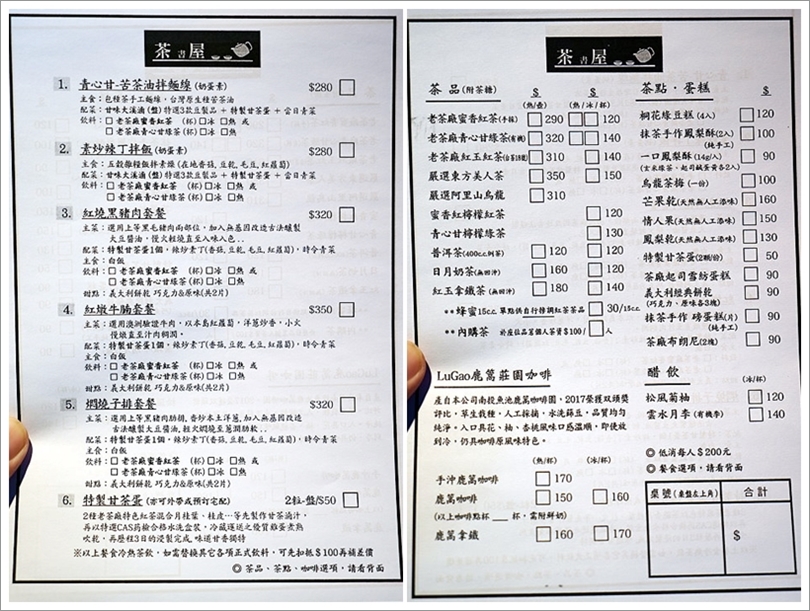 茶書屋
1. 青心甘‧苦茶油拌麵線(奶蛋素) $280
主食：包種茶手工麵線，台灣原生種苦茶油
配菜：甘味大漢滷(盤)特選3款豆製品 + 特製甘茶蛋 + 當日青菜
飲料：□ 老茶廠蜜香紅茶 (杯)□冰 □熱 或
□ 老茶廠青心甘綠茶(杯)□冰 □熱
2. 素炒辣丁拌飯(奶蛋素) $280
主食：五穀雜糧飯拌素燥(在地香菇,豆乾,毛豆,紅蘿蔔)
配菜：甘味大漢滷(盤)特選3款豆製品 + 特製甘茶蛋 + 當日青菜
飲料：□ 老茶廠蜜香紅茶 (杯)□冰 □熱 或
□ 老茶廠青心甘綠茶(杯)□冰 □熱
3. 紅燒黑豬肉套餐 $320
主菜：選用上等黑毛豬肉兩部位，加入無基因改造古法釀製
大豆醬油，慢火細燒直至入味入色..
配菜：特製甘茶蛋1個，辣炒素丁(香菇,豆乾,毛豆,紅蘿蔔)，時令青菜
主食：白飯
飲料：□ 老茶廠蜜香紅茶 (杯)□冰 □熱 或
□ 老茶廠青心甘綠茶(杯)□冰 □熱
甜點：義大利餅乾 巧克力及原味(共2片)
4. 紅燉牛腩套餐 $350
主菜：選用澳洲驗證牛肉，以本島紅蘿蔔，洋蔥炒香，小火
慢燉直至汁肉稠潤。
配菜：特製甘茶蛋1個，辣炒素丁(香菇,豆乾,毛豆,紅蘿蔔)，時令青菜
主食：白飯
飲料：□ 老茶廠蜜香紅茶 (杯)□冰 □熱 或
□ 老茶廠青心甘綠茶(杯)□冰 □熱
甜點：義大利餅乾 巧克力及原味(共2片)
5. 燜燒子排套餐 $320
主菜：選用上等黑毛豬肋排，香炒本土洋蔥,加入無基因改造
古法釀製大豆醬油，輕火燜燒至蔥潤肋軟..
配菜：特製甘茶蛋1個，辣炒素丁(香菇,豆乾,毛豆,紅蘿蔔)，時令青菜
主食：白飯
飲料：□ 老茶廠蜜香紅茶 (杯)□冰 □熱 或
□ 老茶廠青心甘綠茶(杯)□冰 □熱
甜點：義大利餅乾 巧克力及原味(共2片)
6. 特製甘茶蛋(亦可外帶或預訂宅配) 2粒-盤/$50
2種老茶廠特色紅茶混合月桂葉、桂皮…等先製作甘茶滷汁，
再以特選CAS藥檢合格水洗盒裝，冷藏運送之優質雞蛋煮熟
吹乾，再歷程3日的浸製完成,味道甘香獨特
※以上餐食冷熱茶飲，如需替換其它各項正式飲料，可先扣抵$100再補差價
◎ 茶品、茶點、咖啡選項，請看背面
茶書屋
茶 品(附茶糖) $ $
(熱/壺) (熱/冰/杯)
老茶廠蜜香紅茶(手採) 290 120
老茶廠青心甘綠茶(有機) 320 120
老茶廠紅玉紅茶(台茶18號) 310 140
嚴選東方美人茶 350 150
嚴選阿里山烏龍 310
蜜香紅檸檬紅茶 120
青心甘檸檬綠茶 130
普洱茶(400cc側茶) 120 120
日月奶茶(無回沖) 160 120
紅玉拿鐵茶(無回沖) 180 140
**蜂蜜15cc.單點供自行條調紅茶茶品 30/15cc
**內購茶 於座位品茗個人茶資$100/ 人
LuGao鹿篙莊園咖啡
產自本公司南投魚池鹿篙咖啡園，2017榮獲双頭獎
評比，草生栽種，人工採摘，水洗篩豆，品質均勻
純淨。入口具花、柚、杏桃風味口感溫順，即使放
到冷，仍具咖啡原風味特色。
(熱/杯) (冰/杯)
手沖鹿篙咖啡 170
鹿篙咖啡 150 160
(以上咖啡點杯___杯，需附鮮奶)
鹿篙拿鐵 160 170
茶點‧蛋糕 $
桐花綠豆糕(4入) 120
抹茶手作鳳梨酥(2入) 100
(純手工)
一口鳳梨酥(14g/入) 90
(玄米綠茶、起司鹹蛋黃各2入)
烏龍茶梅(一份) 100
芒果乾(天然無人工添味) 160
情人果(天然無人工添味) 150
鳳梨乾(天然無人工添味) 130
特製甘茶蛋(2顆/份) 50
茶廠起司雪紡蛋糕 90
義大利經典餅乾 90
(巧克力、原味各3塊)
抹茶手作 磅蛋糕(片) 90
(純手工)
茶廠布朗尼(2塊) 90
醋 飲 (冰/杯)
松風菊柚 120
雲水月季(有機季) 140
◎ 低消每人$200元
◎ 餐食選項，請看背面
桌號(桌盤左上角) 合計
$